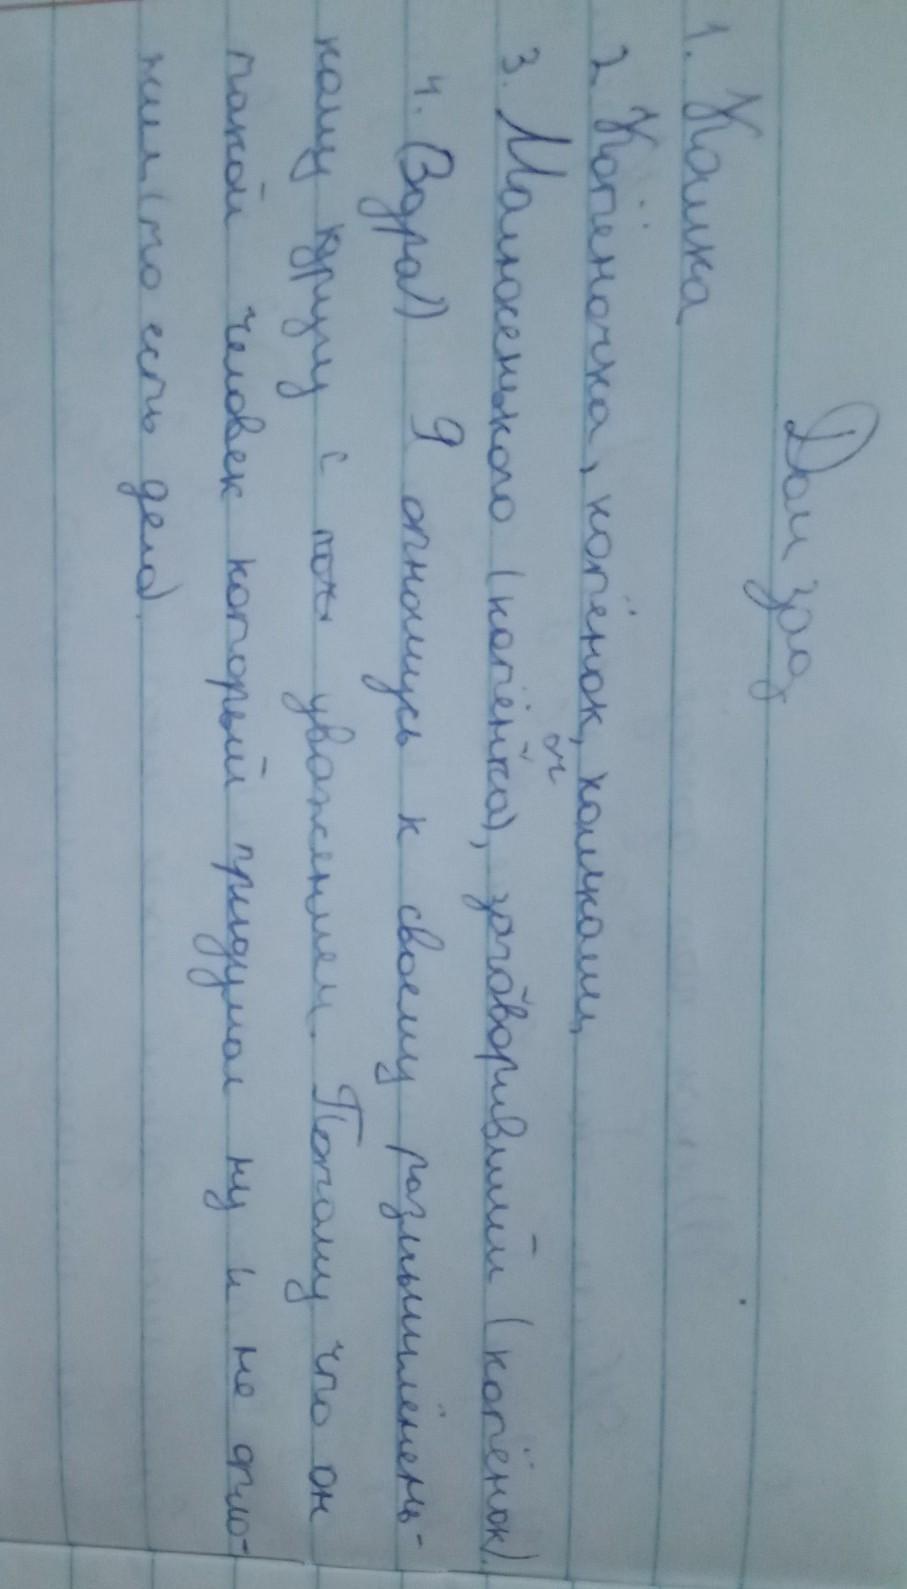 Дом зад
1. Кошка
2. Котёночка, котёнок, кошкош
3. Маленького (котёнка), заговоривший (котёнок).
4. (Вздрал) Я отношусь к своему размышлень-
кому другу с точь уважением. Потому что он
такой человек который придумал ну и не отло-
жил (то есть дела).